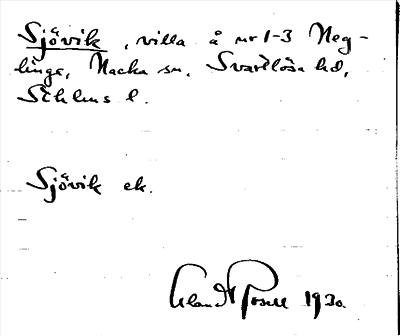 Sjövik, villa å nr 1-3 Neg-
linge, Nacka sn, Svartlösa hd,
Sthlms l.
Sjövik ek.
1930.